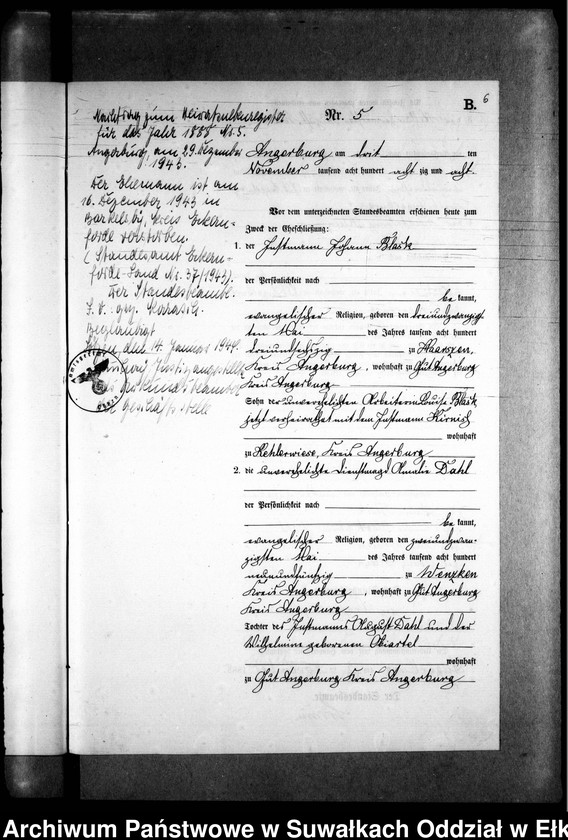 B.
6
Nr. 5
Nachtrag zum Heiratsnebenregister
für das Jahr 1888 Nr. 5.
Angerburg, am 29. Dezember
1943.
Der Ehemann ist am
16. Dezember 1943 in
Barkelsby, Kreis Eckern-
förde verstorben.
(Standesamt Eckern-
förde-Land Nr. 37/1943).
Der Standesbeamte.
I. V. gez.
Beglaubigt
den 14. Januar 1944.
Geschäftsstelle
Angerburg am drit ten
November tausend acht hundert acht zig und acht.
Vor dem unterzeichneten Standesbeamten erschienen heute zum
Zweck der Eheschließung:
1. der Instmann Johann Blask
der Persönlichkeit nach
be kannt,
evangelischer Religion, geboren den dreiundzwanzig
ten Mai des Jahres tausend acht hundert
dreiundsechszig zu Haarszen,
Kreis Angerburg, wohnhaft zu Gut Angerburg
Kreis Angerburg
Sohn der unverehelichten Arbeiterin Louise Blask
jetzt verheirathet mit dem Instmann Kirnich
wohnhaft
zu Kehlerwiese, Kreis Angerburg
2. die unverehelichte Dienstmagd Amalie Dahl
der Persönlichkeit nach
be kannt,
evangelischer Religion, geboren den zweiundzwan-
zigsten Mai des Jahres tausend acht hundert
neunundfünfzig zu Wenzken
Kreis Angerburg, wohnhaft zu Gut Angerburg
Kreis Angerburg
Tochter des Instmanns August Dahl und der
Wilhelmine geborenen
wohnhaft
zu Gut Angerburg Kreis Angerburg
Archiwum Państwowe w Suwałkach Oddział w Ełk